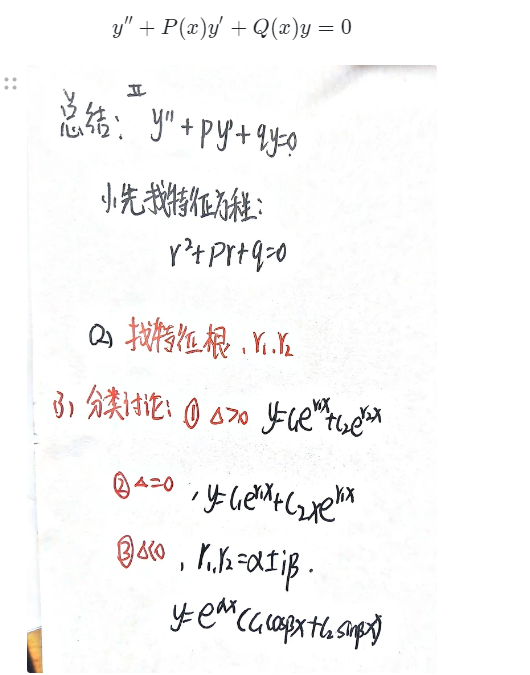 y″ + P(x)y′ + Q(x)y = 0
II
总结: y″+py′+qy=0
(1) 先找特征方程:
r²+pr+q=0
(2) 找特征根, r₁, r₂
(3) 分类讨论: ① Δ>0 y=C₁e^{r₁x}+C₂e^{r₂x}
② Δ=0, y=C₁e^{r₁x}+C₂xe^{r₁x}
③ Δ<0, r₁,r₂=α±iβ.
y=e^{αx}(C₁cosβx+C₂sinβx)